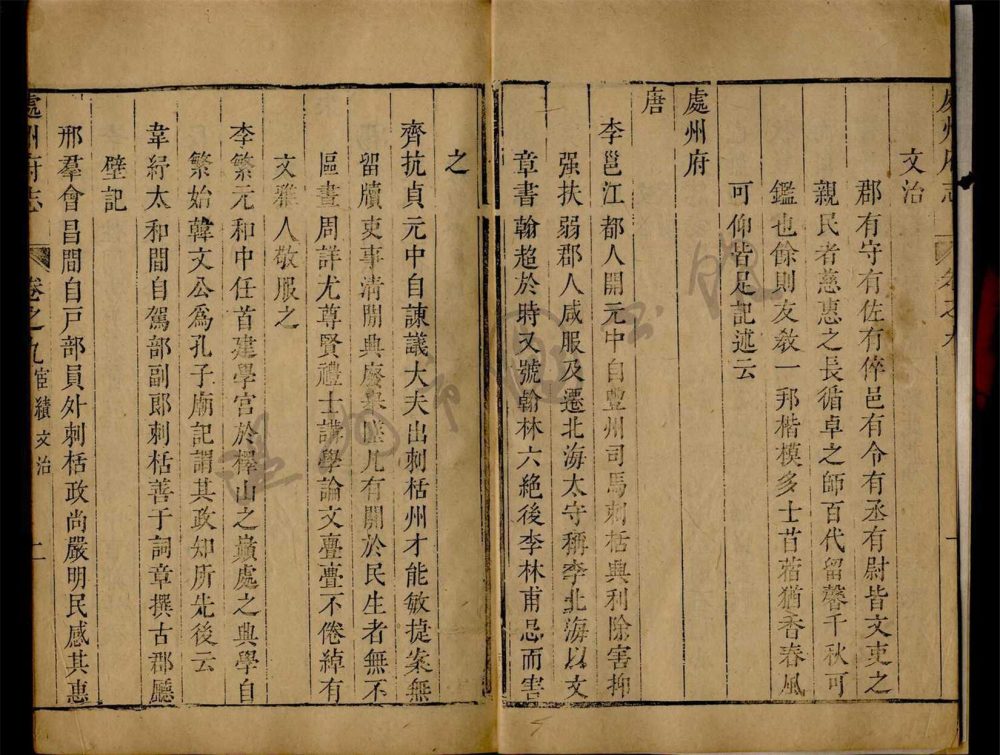 處州府志
卷之九
文治
郡有守有佐有倅邑有令有丞有尉皆文吏之
親民者慈惠之長循卓之師百代留馨千秋可
鑑也餘則友教一邦楷模多士苜蓿猶香春風
可仰皆足記述云
處州府
唐
李邕江都人開元中自豐州司馬刺栝興利除害抑
强扶弱郡人咸服及遷北海太守稱李北海以文
章書翰超於時又號翰林六絕後李林甫忌而害
之
齊抗貞元中自諫議大夫出刺栝州才能敏捷案無
留牘吏事清閒典廢畢凡有關於民生者無不
區畫周詳尤尊賢禮士講學論文亹亹不倦綽有
文雅人敬服之
李繁元和中任首建學宮於樿山之巔處之興學自
繁始韓文公爲孔子廟記謂其政知所先後云
韋紓太和間自駕部副郎刺栝善于詞章撰古郡廳
壁記
邢羣會昌間自戸部員外刺栝政尚嚴明民感其惠
處州府志
卷之九
宦績
文治
二